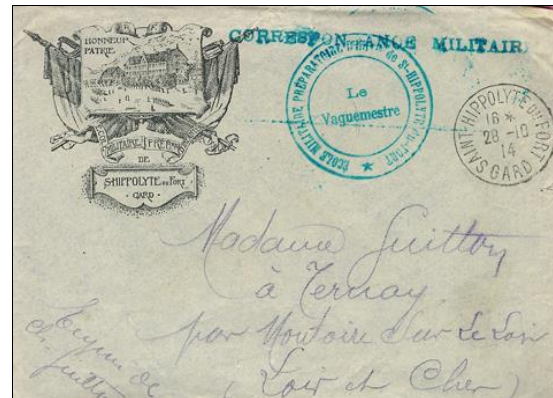 HONNEUR
PATRIE
ÉCOLE MILITAIRE PRÉPRE
DE
S-HIPPOLYTE DU FORT
GARD
CORRESPON ANCE MILITAIR
ÉCOLE MILITAIRE PRÉPARATOIRE de St-HIPPOLYTE-du-FORT
Le
Vaguemestre
SAINT-HIPPOLYTE DU FORT
16 *
28 -10
14
GARD
Madame Guitton
à Ternay
par Montoire sur Le Loir
(Loir et Cher)